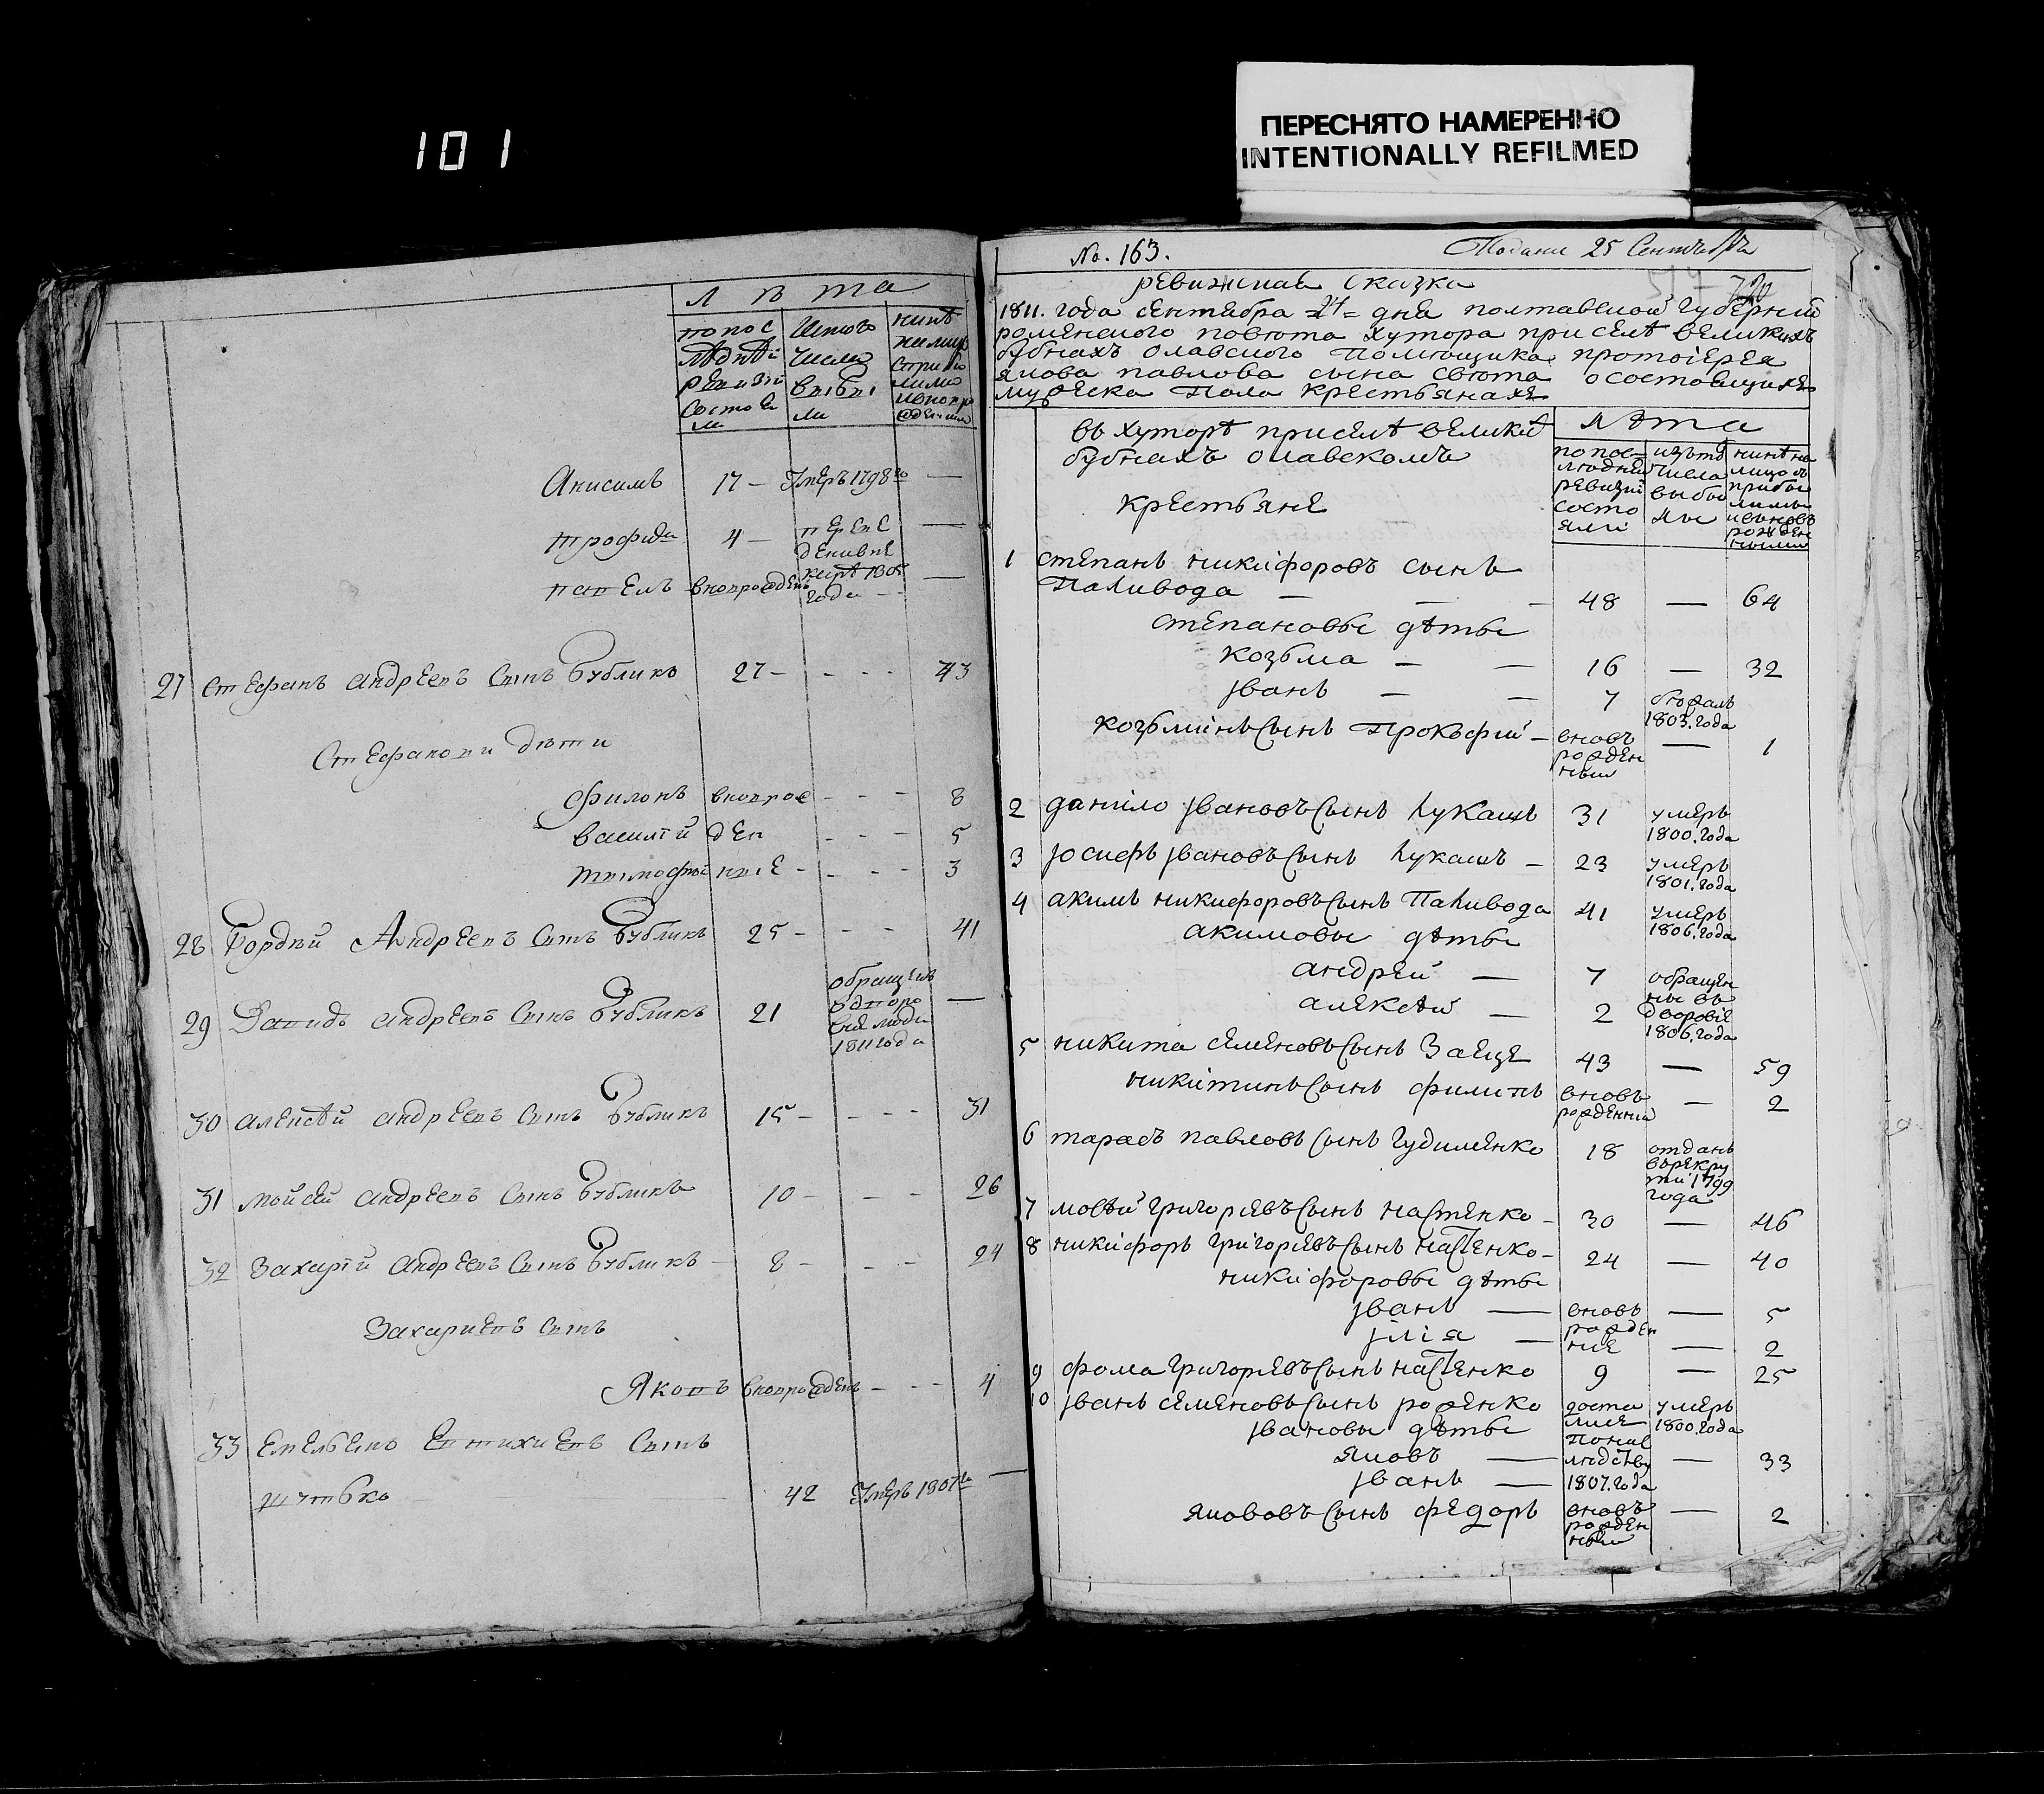 101
ПЕРЕСНЯТО НАМЕРЕННО
INTENTIONALLY REFILMED
Лѣта
попос
лѣднѣй
ревизіи
состоя
ли
Изтого
числа
выбы
ли
нинѣ
налицо
Анисимъ 17 — Умеръ 1798го —
трофимъ 4 —
павелъ вноврожденъ —
27 Стефанъ андреевъ Сынъ Бубликъ 27 — - - - 43
Стефанови дѣти
филонъ вноврож - - - 8
василій ден - - - 5
тимофѣй ные - - - 3
28 Гордѣй Андреевъ Сынъ Бубликъ 25 — - - 41
29 Давидъ андреевъ Сынъ Бубликъ 21 обращенъ
вдворо
вие люди
1811 года —
30 алексѣй андреевъ Сынъ Бубликъ 15 — - - - 31
31 мойсей андреевъ Сынъ Бубликъ 10 — - - 26
32 Захарій андреевъ Сынъ Бубликъ — 8 — - - 24
Захариевъ Сынъ
Яковъ вноврожденъ - - - 4
33 Емельянъ Евтихиевъ Сынъ
42 Умеръ 1807го —
No. 163. Подана 25 Сентября
ревижская сказка
1811. года сентября 24 = дня полтавской губернии
роменского повюта хутора при селѣ великихъ
бубнахъ олавского Помющика протоіерея
якова павлова сына Свюта о состоящихъ
мужеска Пола крестьянахъ
въ хуторѣ приселѣ великихъ
бубнахъ олавскомъ
крестьяне
Лѣта
попос=
людней
ревизіи
состо
яли
изъто
числа
выбы
лы
нинѣ на
лицо съ
прибы
лими
ивновъ
рожден
ными
1 степанъ никифоровъ сынъ
Паливода — — — 48 — 64
степановы дѣты
козьма — — 16 — 32
іванъ — — 7 бѣжалъ
1803. года
козьминъ Сынъ Прокъфий — вновъ
рожден
ный — 1
2 данило івановъ Сынъ лукашъ 31 умеръ
1800. года
3 іосифъ івановъ Сынъ лукашъ — 23 умеръ
1801. года
4 акимъ никифоровъ Сынъ Паливода 41 умеръ
1806. года
акимовы дѣты
андрей — 7 обращен
ны въ
дворовіе
1806. года
алексѣй — 2
5 никита семеновъ Сынъ Заецъ 43 — 59
никитинъ Сынъ филипъ вновъ
рожденни — 2
6 тарасъ павловъ Сынъ гудименко 18 отданъ
върекру
ти 1799
года
7 мосѣй григоріевъ Сынъ настенко — 30 — 46
8 никифоръ григоріевъ Сынъ настенко — 24 — 40
никифоровы дѣты
іванъ — вновъ
рожден
ніе — 5
ілія — — 2
9 фома григоріевъ Сынъ настенко 9 — 25
10 іванъ семеновъ Сынъ роженко доста
лися
по
1807. года
умеръ
1800. года
івановы дѣты
яковъ — — 33
іванъ —
якововъ Сынъ федоръ вновъ
рожден
ный — 2